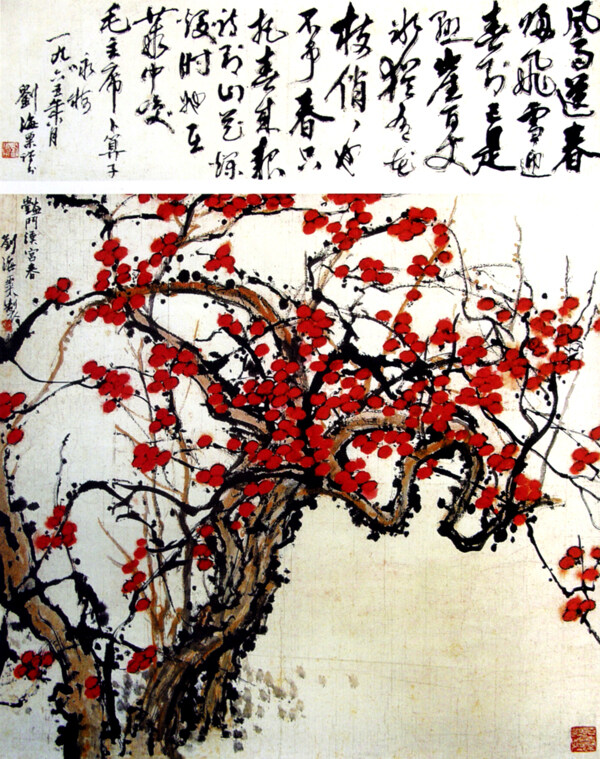 風雨送春
歸飛雪迎
春到已是
懸崖百丈
冰猶有花
枝俏々也
不爭春只
把春來報
待到山花爛
漫时她在
叢中笑
毛主席卜算子
咏梅
一九六 年 月
劉海粟
豔鬥漢宮春
劉海粟